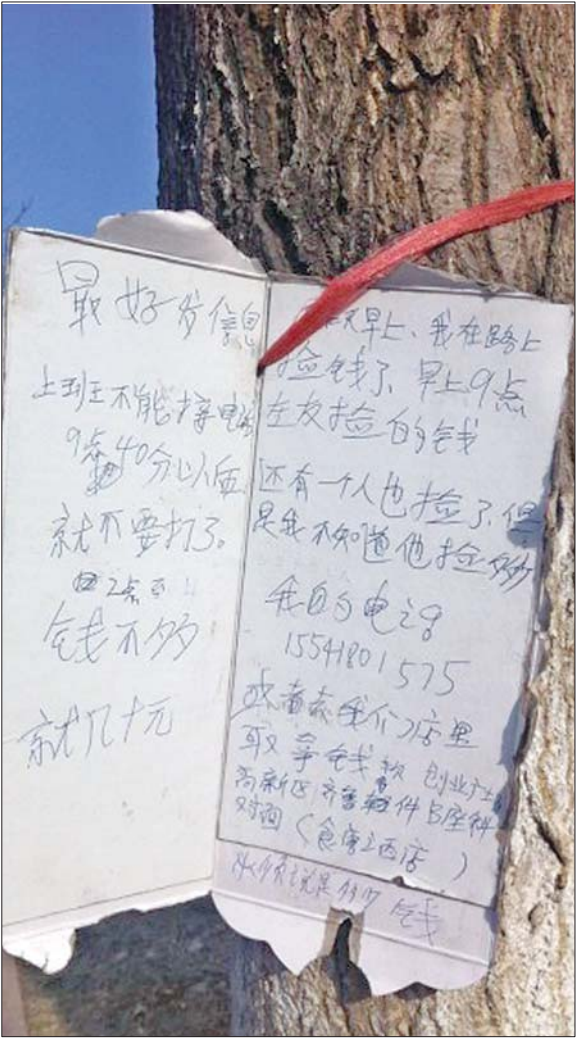 最好发信息
上班不能接电话
9点40分以后
就不要打了。
钱不多
就几十元
天早上、我在路上
捡钱了、早上9点
左友捡的钱
还有一个人也捡了、但
是我不知道他捡多少
我的电话
15541801575
或者来我们店里
取拿钱 创业产业
高新区齐鲁软件B座科
对面（西店）
钱